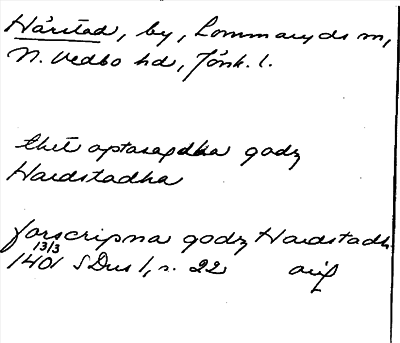 Hårstad, by, Lommaryds sn,
N. Vedbo hd, Jönk. l.
thet optasagdha godz
Hardstadha
forscripna godz Hardstadh
13/3
1401 SDns 1, s. 22 orig